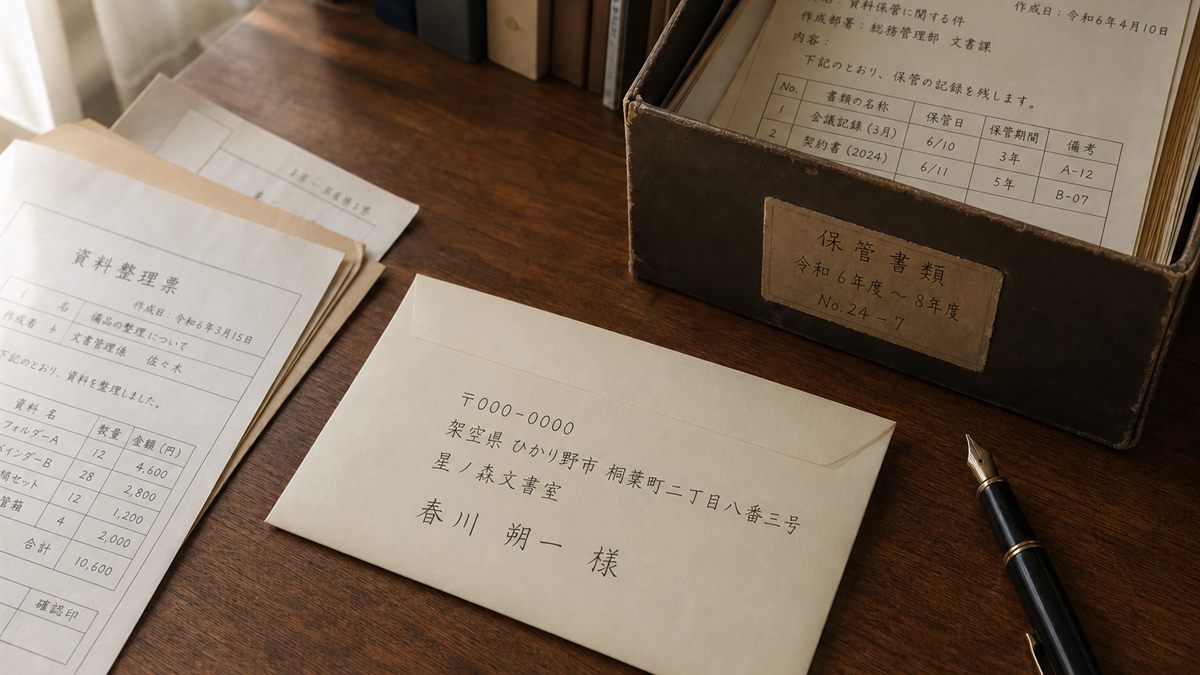 資料整理票
作成日：令和6年3月15日
名 備品の整理について
作成者 文書管理係 佐々木
下記のとおり、資料を整理しました。
資料名 数量 金額（円）
フォルダーA 12 4,600
インダーB 28 2,800
セット 12 1,200
管箱 4 2,000
合計 10,600
確認印
〒000-0000
架空県 ひかり野市 桐葉町二丁目八番三号
星ノ森文書室
春川 朔一 様
作成日：令和6年4月10日
名：資料保管に関する件
作成部署：総務管理部 文書課
内容：
下記のとおり、保管の記録を残します。
No. 書類の名称 保管日 保管期間 備考
1 会議記録（3月） 6/10 3年 A-12
2 契約書（2024） 6/11 5年 B-07
保管書類
令和6年度～8年度
No.24-7